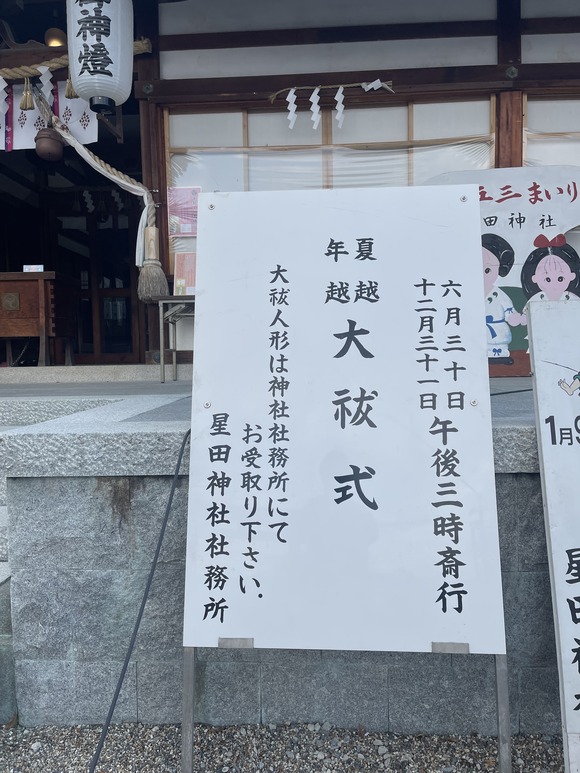 御神燈
六月三十日
十二月三十一日
午後三時斎行
夏越
年越
大祓式
大祓人形は神社社務所にて
お受取り下さい.
星田神社社務所
五三まいり
田神社
1月9
星田神社